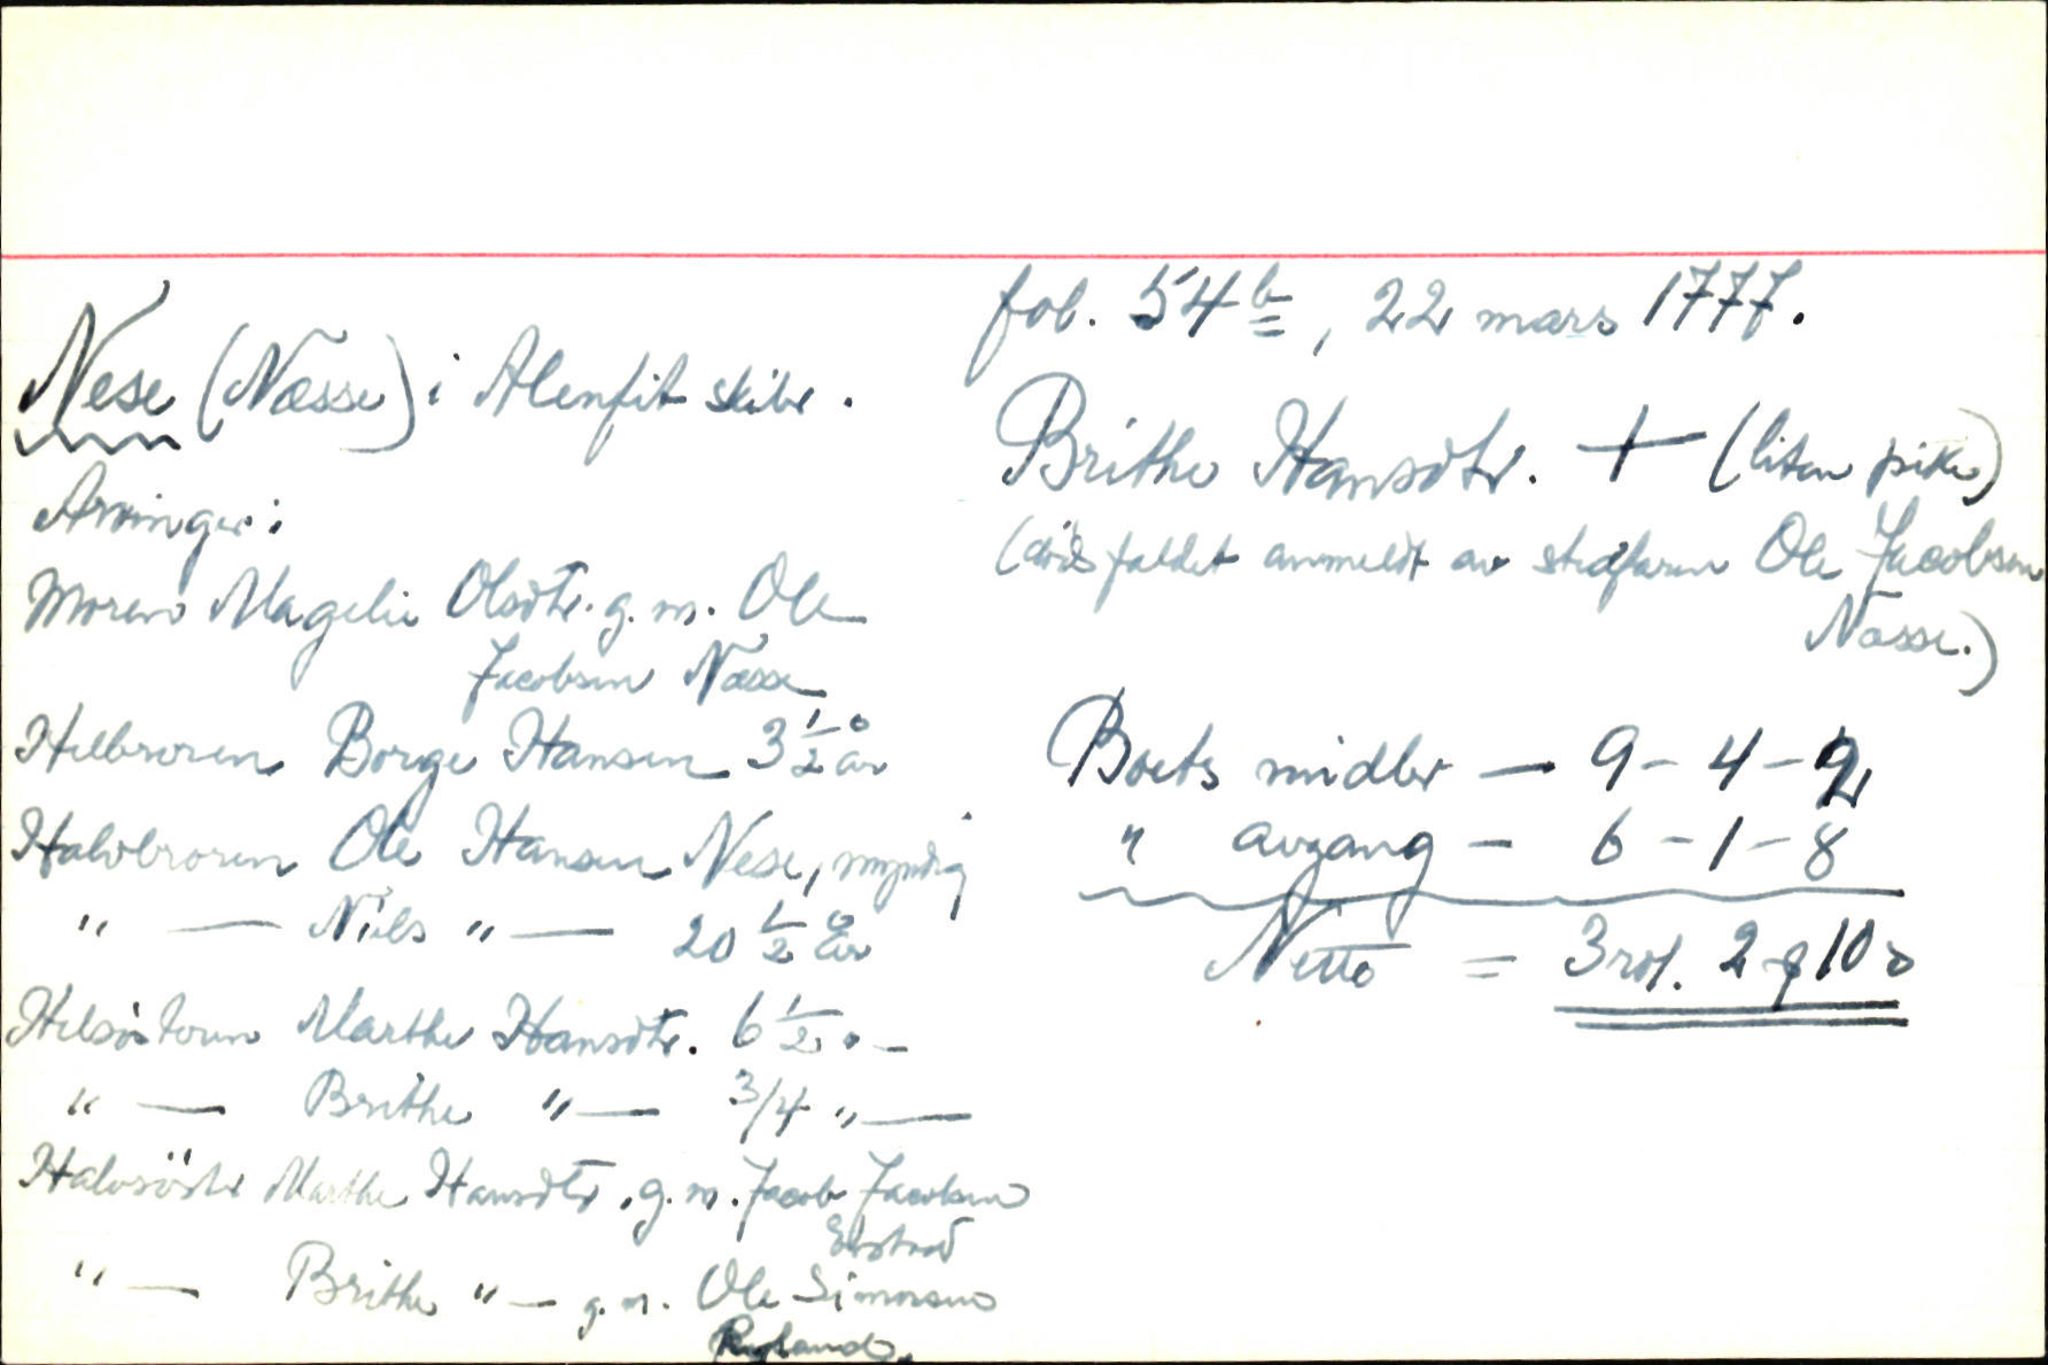 fol. 54 b, 22 mars 1777.
Nese (Næsse) i Alenfit skibr.
Brithe Hansdtr. + (liten pike)
(dödsfaldet anmeldt av stedfaren Ole Jacobsen
Næsse.)
Boets midler — 9 - 4 - 2
" avgang — 6 - 1 - 8
Netto = 3 rdl. 2 ꝗ 10 s
Arvinger:
Moren Magelie Olsdtr. g. m. Ole
Jacobsen Næsse
Helbroren Borge Hansen 3 1/2 år
Halvbroren Ole Hansen Nese, myndig
" — Nils " — 20 1/2 år
Helsösteren Marthe Hansdtr. 6 1/2 " -
" — Brithe " — 3/4 " —
Halvsöster Marthe Hansdtr. g. m. Jacob Jacobsen
" — Brithe " — g. m. Ole Simonsen
Ryland.